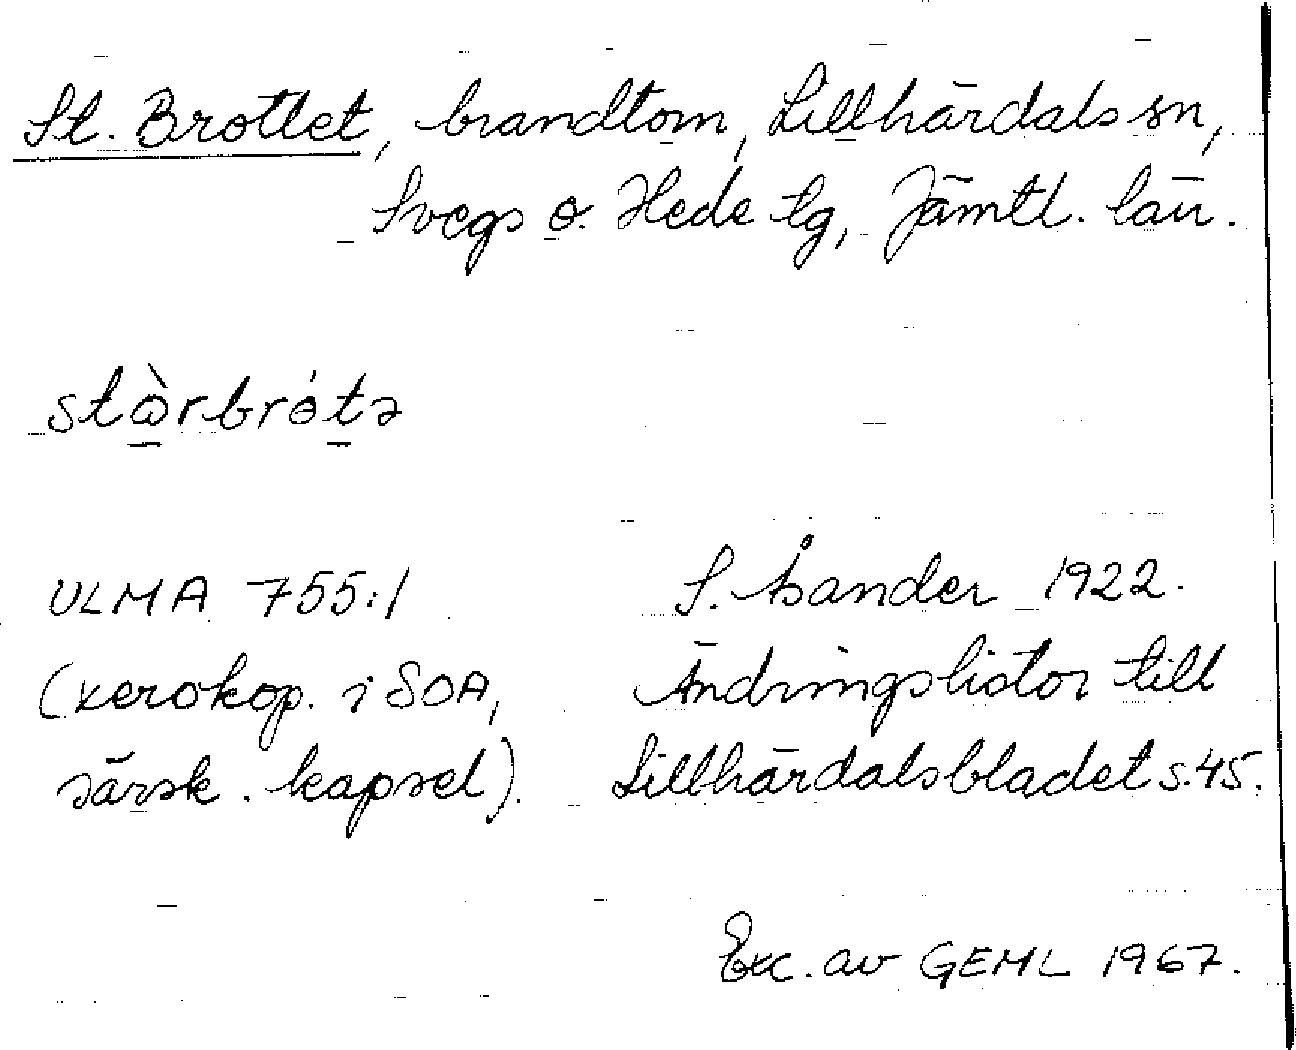 St. Brottet, brandtom, Lillhärdals sn,
Svegs o. Hede tg, Jämtl. län.
stòrbrótə
ULMA 755:1
(xerokop. i SOA,
särsk. kapsel).
S. Åsander 1922.
Ändringslistor till
Lillhärdalsbladet s. 45.
Exc. av GEML 1967.